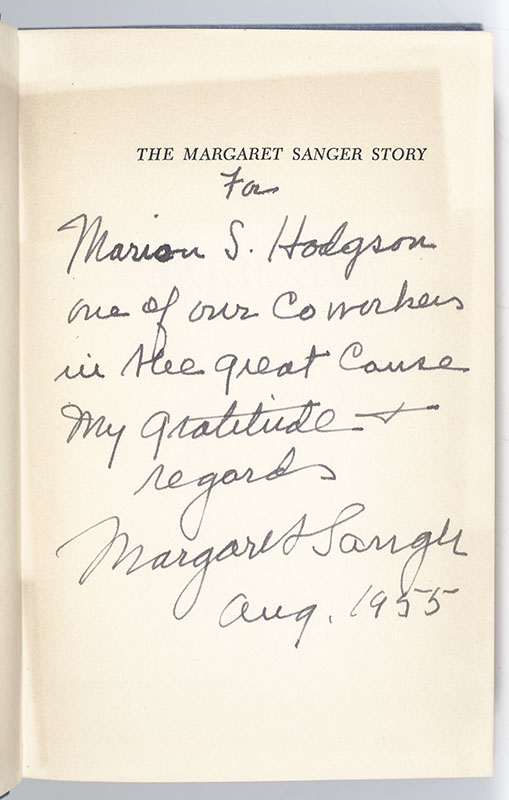 THE MARGARET SANGER STORY
For
Marion S. Hodgson
one of our Coworkers
in the great Cause
My gratitude +
regards
Margaret Sanger
Aug. 1955